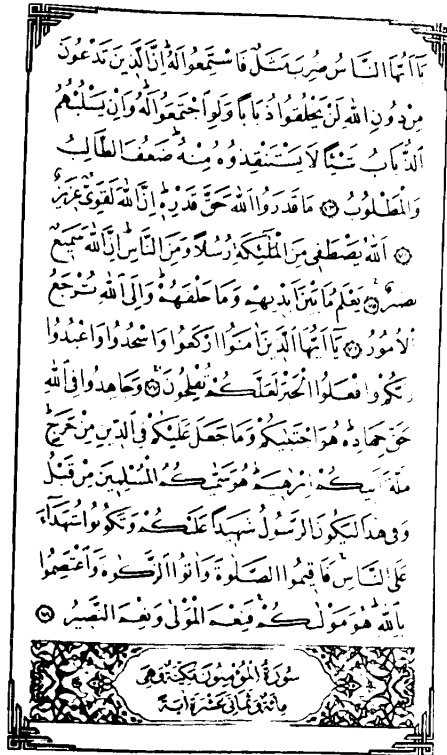 يَٓا اَيُّهَا النَّاسُ ضُرِبَ مَثَلٌ فَاسْتَمِعُوا لَهُۜ اِنَّ الَّذٖينَ تَدْعُونَ
مِنْ دُونِ اللّٰهِ لَنْ يَخْلُقُوا ذُبَابًا وَلَوِ اجْتَمَعُوا لَهُۜ وَاِنْ يَسْلُبْهُمُ
الذُّبَابُ شَيْـًٔا لَا يَسْتَنْقِذُوهُ مِنْهُۜ ضَعُفَ الطَّالِبُ
وَالْمَطْلُوبُ ﴿٧٣﴾ مَا قَدَرُوا اللّٰهَ حَقَّ قَدْرِهٖۜ اِنَّ اللّٰهَ لَقَوِيٌّ عَزٖيزٌ
﴿٧٤﴾ اَللّٰهُ يَصْطَفٖي مِنَ الْمَلٰٓئِكَةِ رُسُلًا وَمِنَ النَّاسِۜ اِنَّ اللّٰهَ سَمٖيعٌ
بَصٖيرٌ ﴿٧٥﴾ يَعْلَمُ مَا بَيْنَ اَيْدٖيهِمْ وَمَا خَلْفَهُمْۜ وَاِلَى اللّٰهِ تُرْجَعُ
الْاُمُورُ ﴿٧٦﴾ يَٓا اَيُّهَا الَّذٖينَ اٰمَنُوا ارْكَعُوا وَاسْجُدُوا وَاعْبُدُوا
رَبَّكُمْ وَافْعَلُوا الْخَيْرَ لَعَلَّكُمْ تُفْلِحُونَ ﴿٧٧﴾ وَجَاهِدُوا فِي اللّٰهِ
حَقَّ جِهَادِهٖۜ هُوَ اجْتَبٰيكُمْ وَمَا جَعَلَ عَلَيْكُمْ فِي الدّٖينِ مِنْ حَرَجٍۜ
مِلَّةَ اَبٖيكُمْ اِبْرٰهٖيمَۜ هُوَ سَمّٰيكُمُ الْمُسْلِمٖينَ مِنْ قَبْلُ
وَفٖي هٰذَا لِيَكُونَ الرَّسُولُ شَهٖيدًا عَلَيْكُمْ وَتَكُونُوا شُهَدَٓاءَ
عَلَى النَّاسِۚ فَاَقٖيمُوا الصَّلٰوةَ وَاٰتُوا الزَّكٰوةَ وَاعْتَصِمُوا
بِاللّٰهِۜ هُوَ مَوْلٰيكُمْۚ فَنِعْمَ الْمَوْلٰى وَنِعْمَ النَّصٖيرُ ﴿٧٨﴾
سُورَةُ الْمُؤْمِنُونَ مَكِّيَّةٌ وَهِيَ
مِائَةٌ وَثَمَانِيَ عَشْرَةَ اٰيَةً